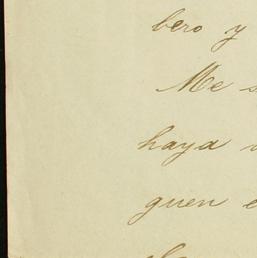 bero y
Me s
haya
guen e